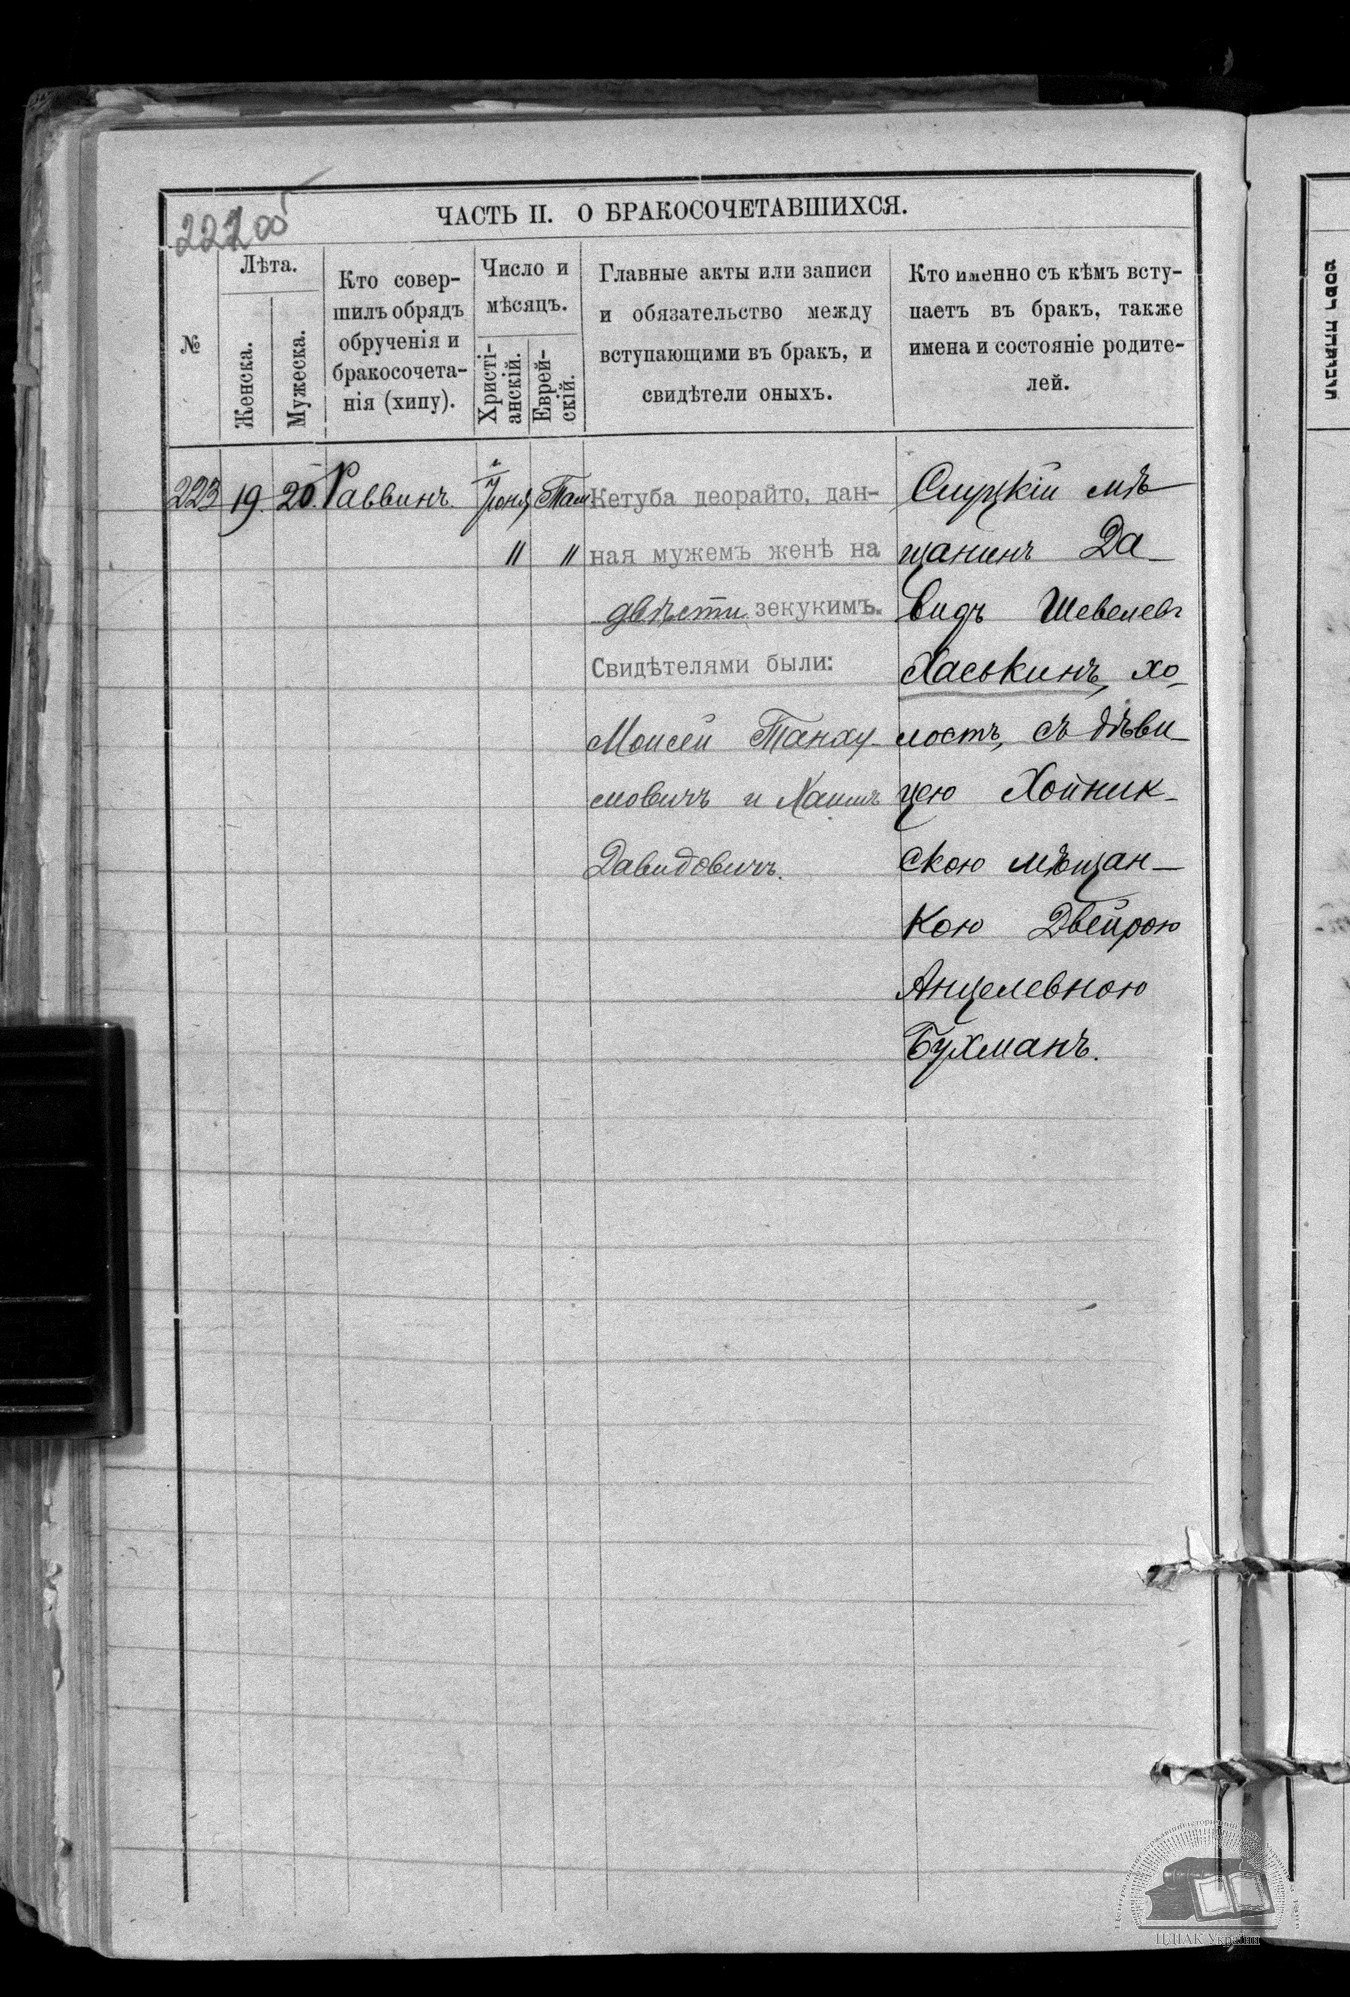 ЧАСТЬ II. О БРАКОСОЧЕТАВШИХСЯ.
№
Лѣта.
Женска.
Мужеска.
Кто совер-
шилъ обрядъ
обрученія и
бракосочета-
нія (хипу).
Число и
мѣсяцъ.
Христі-
анскій.
Еврей-
скій.
Главные акты или записи
и обязательство между
вступающими въ бракъ, и
свидѣтели оныхъ.
Кто именно съ кѣмъ всту-
паетъ въ бракъ, также
имена и состояніе родите-
лей.
223
19.
20.
Раввинъ.
Іюня
11
Там
11
Кетуба деорайто, дан-
ная мужемъ женѣ на
двѣсти зекукимъ.
Свидѣтелями были:
Моисей Танху-
мовичъ и Хаимъ
Давидовичъ.
Слуцкій мѣ-
щанинъ Да-
видъ Шевелевъ
Хаськинъ, хо-
лостъ, съ дѣви-
цею Хойник-
скою мѣщан-
кою Двейрою
Анцелевною
Бухманъ.
ЦДІАК України